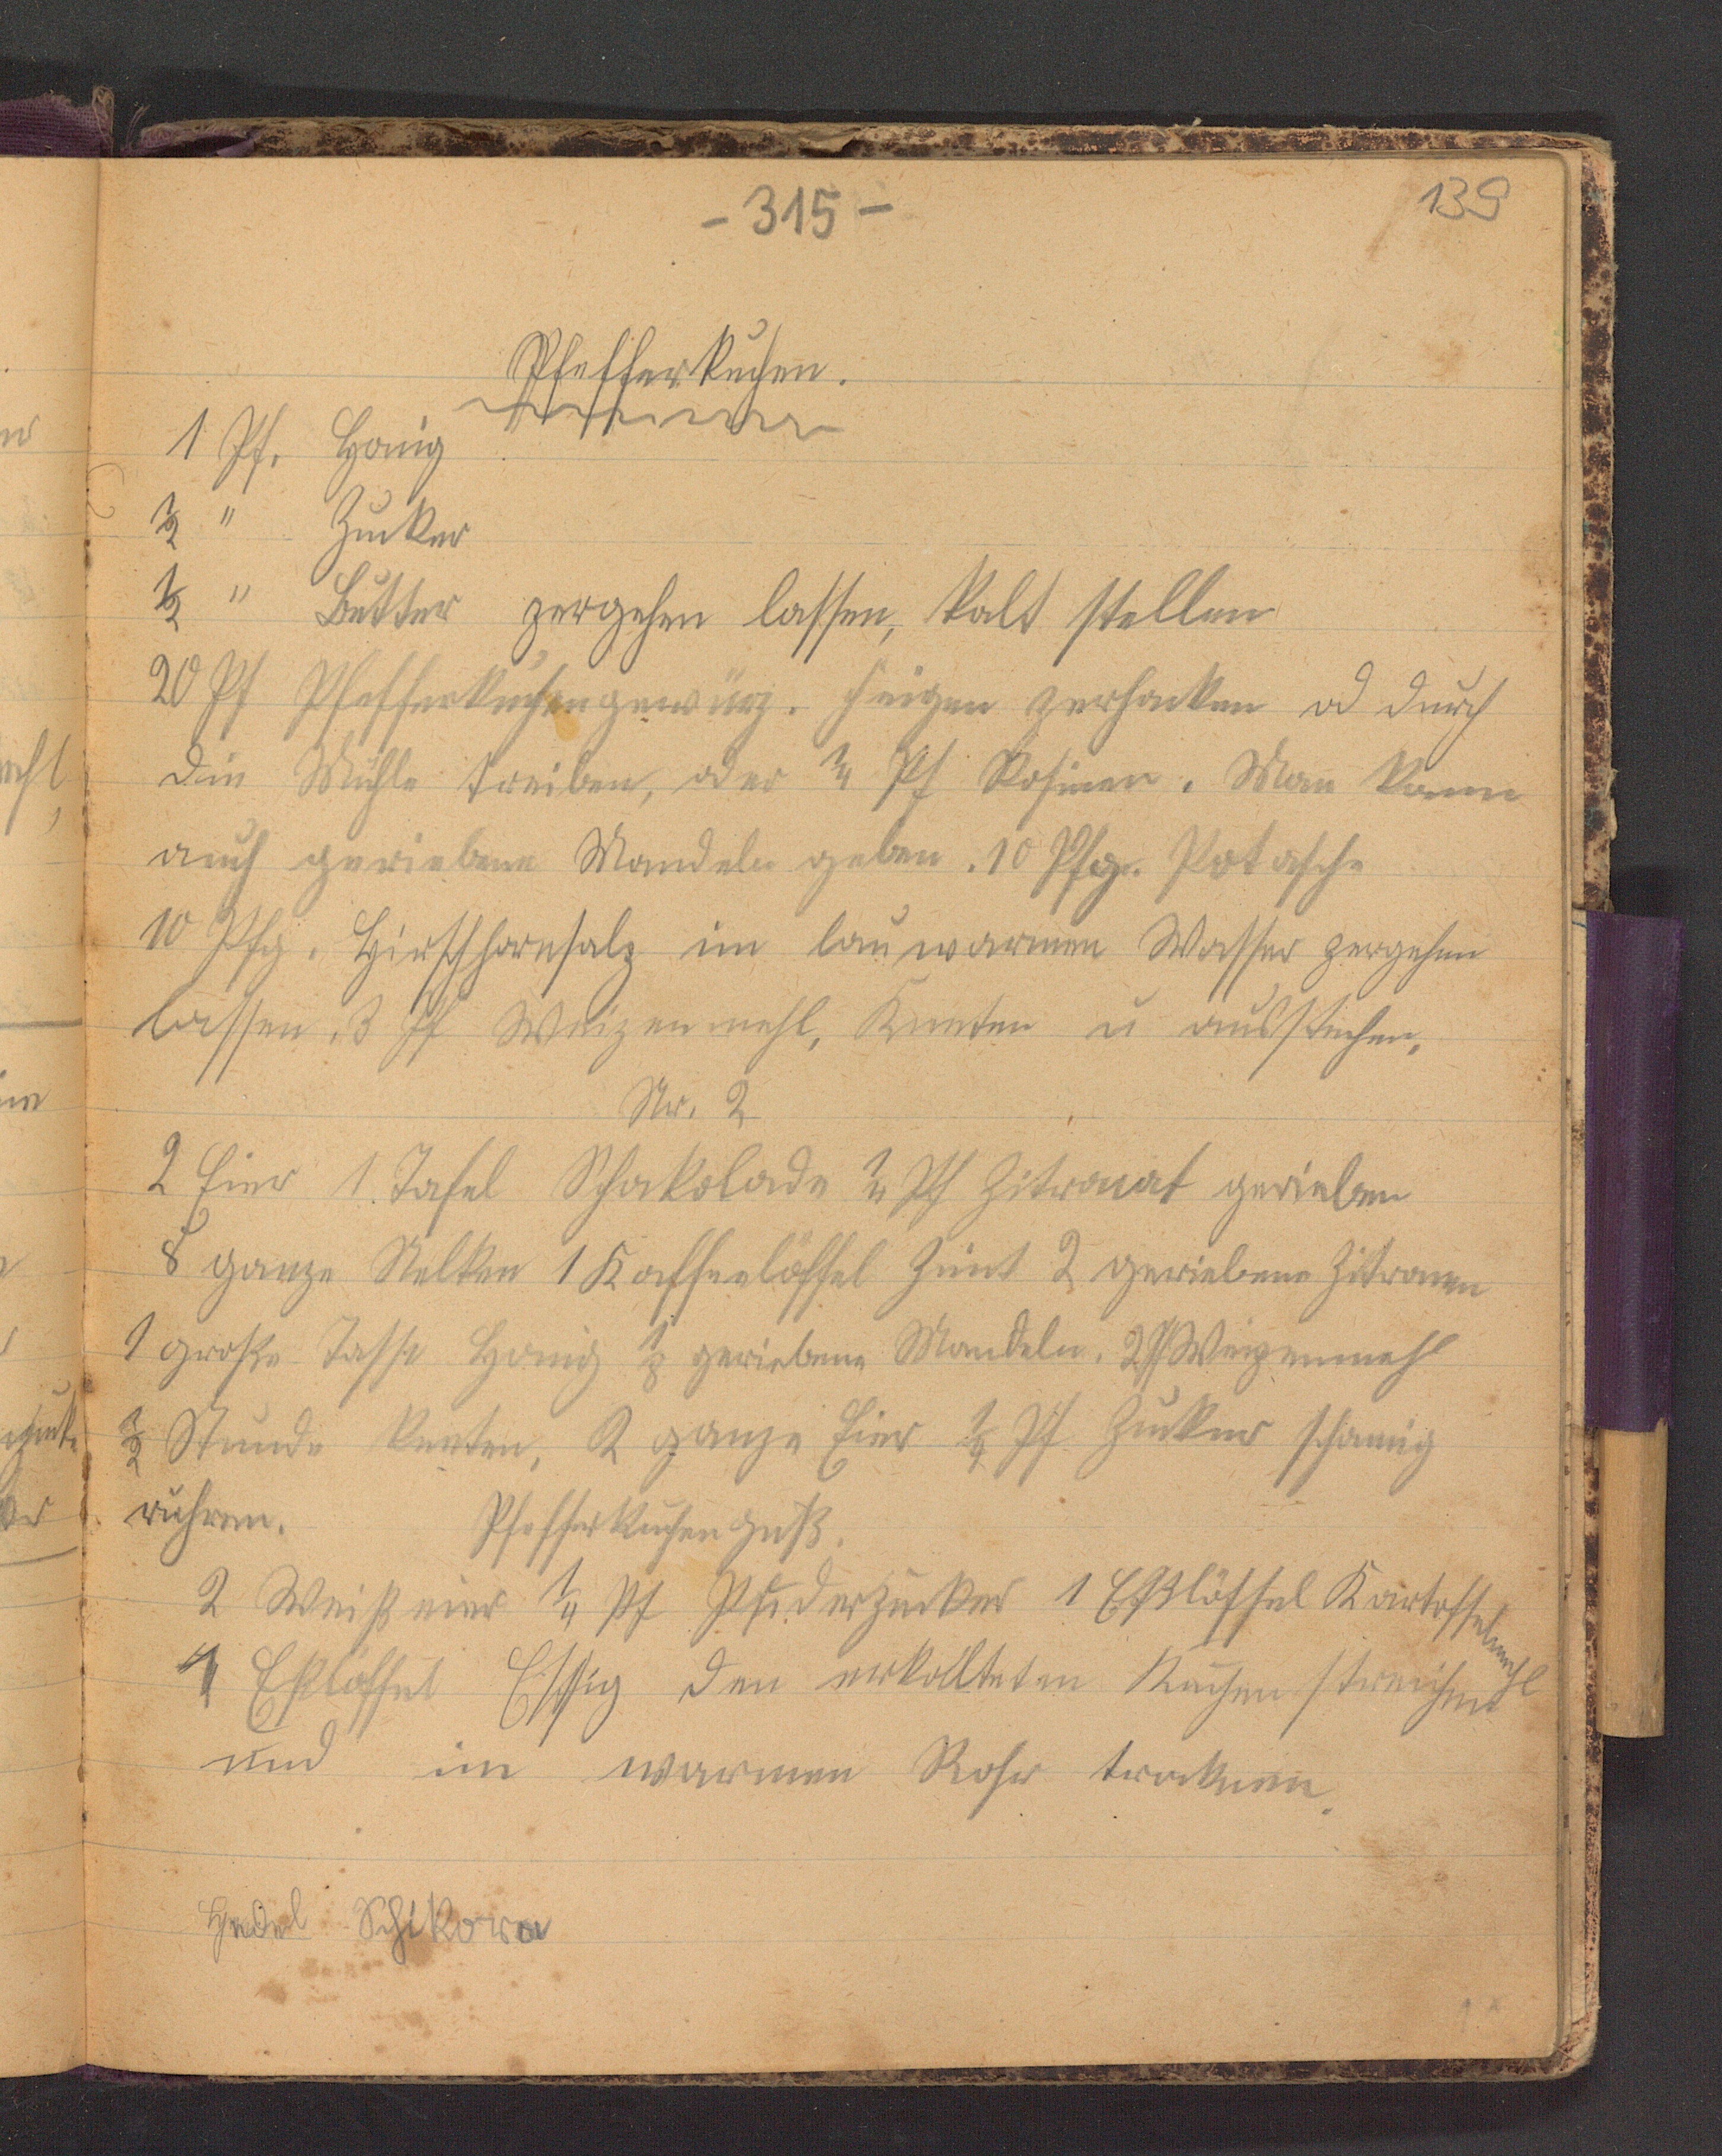 - 315 -
139
Pfefferkuchen.
1 Pf. Honig
1/2 " Zucker
1/2 " Butter zergehen lassen, kalt stellen
20 Pf Pfefferkuchengewürz. Feigen zerhacken od durch
die Mühle treiben, oder 1/4 Pf Rosinen. Man kann
auch geriebene Mandeln geben. 10 Pfg. Potasche
10 Pfg. Hirschhornsalz im lauwarmen Wasser zergehen
lassen. 3 Pf Weizenmehl, Kneten u ausstechen.
Nr. 2
2 Eier 1 Tafel Schakolade 1/4 Pf Zitronat gerieben
8 ganze Nelken 1 Kaffeelöffel Zimt 2 geriebene Zitronen
1 große Tasse Honig geriebene Mandeln. 2 Pf Weizenmehl
1/2 Stunde kneten, 2 ganze Eier 1/4 Pf Zucker schaumig
rühren. Pfefferkuchenguß.
2 Weißeier 1/4 Pf Puderzucker 1 Eßlöffel Kartoffelmehl
1 Eßlöffel Essig den erkallteten Kuchen streichen
und im warmen Rohr trocknen.
Hedel Schikora